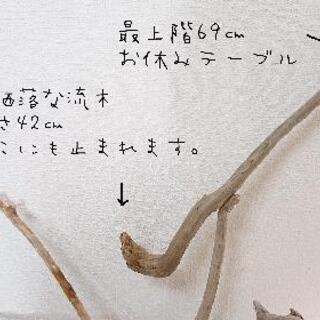 最上階69cm
お休みテーブル
洒落な流木
さ42cm
こにも止まれます。